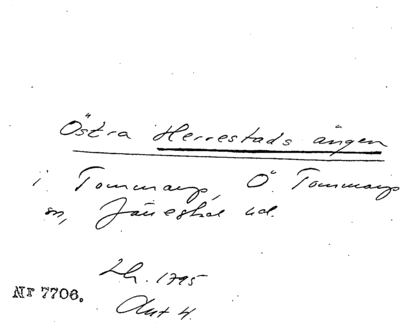 Östra Herrestads ängen
i Tommarp, Ö. Tommarps
sn, Järrestad hd.
Lh. 1795
Nr 7706.
Akt 4.